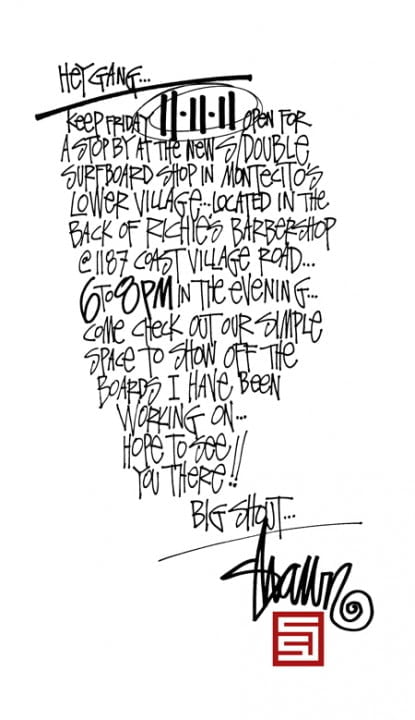 HEY GANG...
KEEP FRIDAY 11·11·11 OPEN FOR
A STOP BY AT THE NEW S/DOUBLE
SURFBOARD SHOP IN MONTECITO'S
LOWER VILLAGE...LOCATED IN THE
BACK OF RICHIE'S BARBERSHOP
@ 1187 COAST VILLAGE ROAD...
6 TO 8PM IN THE EVENING...
COME CHECK OUT OUR SIMPLE
SPACE TO SHOW OFF THE
BOARDS I HAVE BEEN
WORKING ON...
HOPE TO SEE
YOU THERE!!
BIG SHOUT...
Shawn